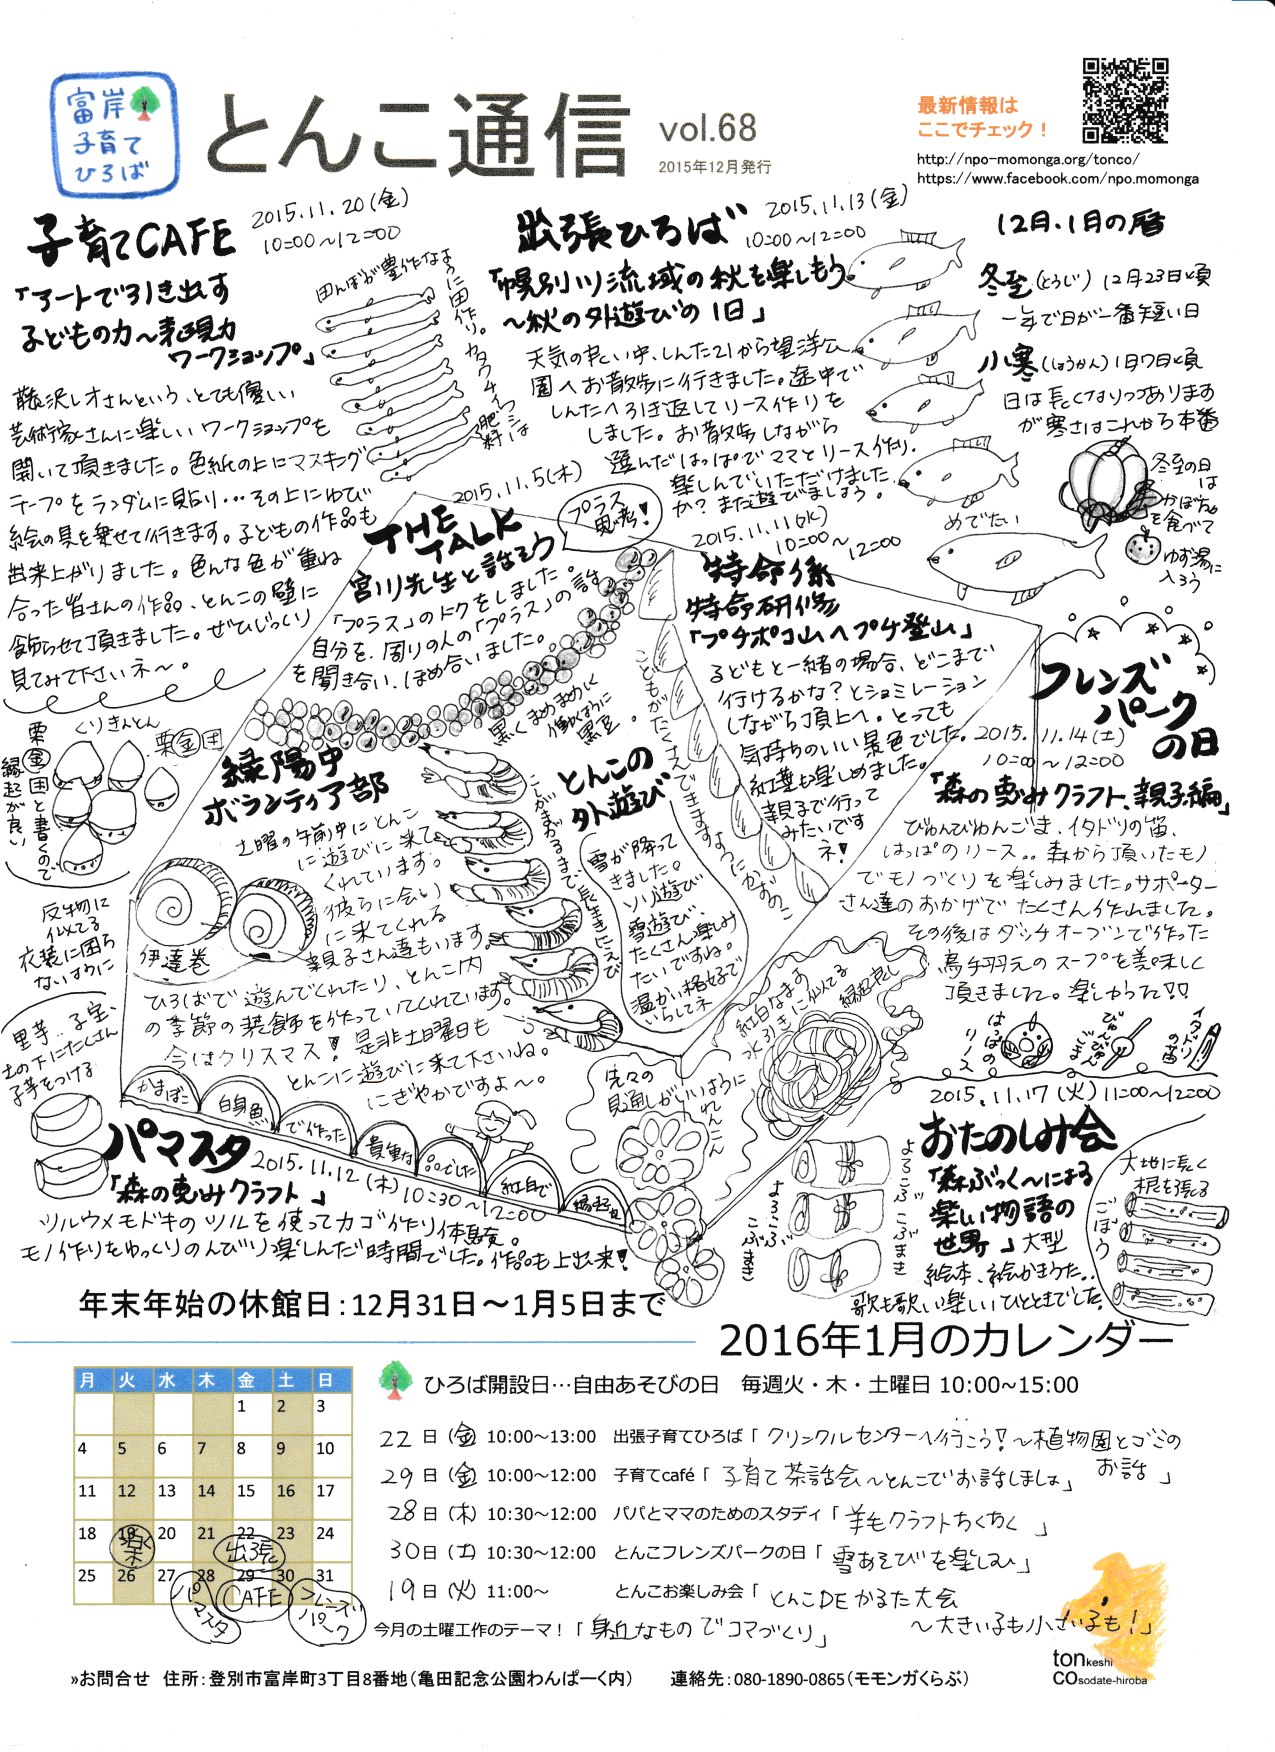 富岸
子育て
ひろば
とんこ通信
vol.68
2015年12月発行
最新情報は
ここでチェック！
http://npo-momonga.org/tonco/
https://www.facebook.com/npo.momonga
子育てCAFE
2015.11.20(金)
10:00〜12:00
「アートで引き出す
子どもの力〜表現力
ワークショップ」
藤沢レオさんという、とても優しい
芸術家さんに楽しいワークショップを
開いて頂きました。色紙の上にマスキング
テープをランダムに貼り…その上にゆび
絵の具を乗せて行きます。子どもの作品も
出来上がりました。色んな色が重ね
合った皆さんの作品、とんこの壁に
飾らせて頂きました。ぜひじっくり
見てみて下さいネ〜。
田んぼが豊作なように田作り。
カタクチイワシは
肥料
出張ひろば
2015.11.13(金)
10:00〜12:00
「幌別川流域の秋を楽しもう
〜秋の外遊びの1日」
天気の良い中、しんた21から望洋公
園へお散歩に行きました。途中で
しんたへ引き返してリース作りを
しました。お散歩しながら
選んだはっぱでママとリース作り。
楽しんでいただけました
か？また遊びましょう。
めでたい
12月、1月の暦
冬至(とうじ) 12月23日頃
一年で日が一番短い日
小寒(しょうかん) 1月7日頃
日は長くなりつつあります
が寒さはこれから本番
冬至の日
は
かぼちゃ
を食べて
ゆず湯に
入ろう
2015.11.5(木)
THE
TALK
宮川先生と話そう
プラス
思考!
「プラス」のトークをしました。
自分を、周りの人の「プラス」の話
を聞き合い、ほめ合いました。
黒くまめまめしく
働くように
黒豆。
2015.11.11(水)
10:00〜
12:00
特命係
特命研修
「プチポコ山へプチ登山」
子どもと一緒の場合、どこまで
行けるかな？とシュミレーション
しながら頂上へ。とっても
気持ちのいい景色でした。
紅葉も楽しめました。
親子で行って
みたいです
ネ!
こどもがたくさんできますようにかずのこ
フレンズ
パーク
の日
2015.11.14(土)
10:00〜12:00
「森の恵みクラフト、親子編」
びゅんびゅんごま、イタドリの笛、
はっぱのリース‥森から頂いたモノ
でモノづくりを楽しみました。サポーター
さん達のおかげでたくさん作れました。
その後はダッチオーブンで作った
鳥手羽元のスープを美味しく
頂きました。楽しかった!!
はっぱの
リース
びゅんびゅん
ごま
イタドリ
の笛
くりきんとん
栗金団
栗金団と書くので
縁起が良い
緑陽中
ボランティア部
土曜の午前中にとんこ
に遊びに来て
くれています。
彼らに会い
に来てくれる
親子さん達もいます。
ひろばで遊んでくれたり、とんこ内
の季節の装飾を作っていてくれています。
今はクリスマス！是非土曜日も
とんこに遊びに来て下さいね。
にぎやかですよ〜。
こしがまがるまで長生きにえび
とんこの
外遊び
雪が降って
きました。
ソリ遊び
雪遊び、
たくさん楽しみ
たいですね。
温かい格好で
いらしてネ
伊達巻
反物に
似てる
衣装に困ら
ないように
里芋‥子宝、
土の下にたくさん
子芋をつける
かまぼこ
白身魚
で作った
貴重な
品でした
紅白で
縁起物
紅白なます
水引きに似てる
縁起良し
先々の
見通しがいいように
れんこん
パマスタ
2015.11.12(木)10:30〜12:00
「森の恵みクラフト」
ツルウメモドキのツルを使ってカゴ作り体験。
モノ作りをゆっくりのんびり楽しんだ時間でした。作品も上出来!
よろこぶこぶまき
よろこぶ
こぶまき
2015.11.17(火)11:00〜12:00
おたのしみ会
「森ぶっく〜による
楽しい物語の
世界」大型
絵本、絵かきうた‥
歌も歌い楽しいひとときでした。
大地に長く
根を張る
ごぼう
年末年始の休館日：12月31日〜1月5日まで
2016年1月のカレンダー
月 火 水 木 金 土 日
1 2 3
4 5 6 7 8 9 10
11 12 13 14 15 16 17
18 19 20 21 22 23 24
25 26 27 28 29 30 31
出張
パマスタ
CAFE
フレンズパーク
ひろば開設日…自由あそびの日 毎週火・木・土曜日 10:00~15:00
22日(金) 10:00~13:00 出張子育てひろば「クリンクルセンターへ行こう!〜植物園とゴミの
お話」
29日(金) 10:00~12:00 子育てcafé「子育て茶話会〜とんこでお話しましょ」
28日(木) 10:30~12:00 パパとママのためのスタディ「羊毛クラフトちくちく」
30日(土) 10:30~12:00 とんこフレンズパークの日「雪あそびを楽しむ」
19日(火) 11:00~ とんこお楽しみ会「とんこDEかるた大会
〜大きい子も小さい子も!」
今月の土曜工作のテーマ！「身近なものでコマづくり」
tonkeshi
COsodate-hiroba
»お問合せ 住所：登別市富岸町3丁目8番地（亀田記念公園わんぱーく内） 連絡先：080-1890-0865（モモンガくらぶ）